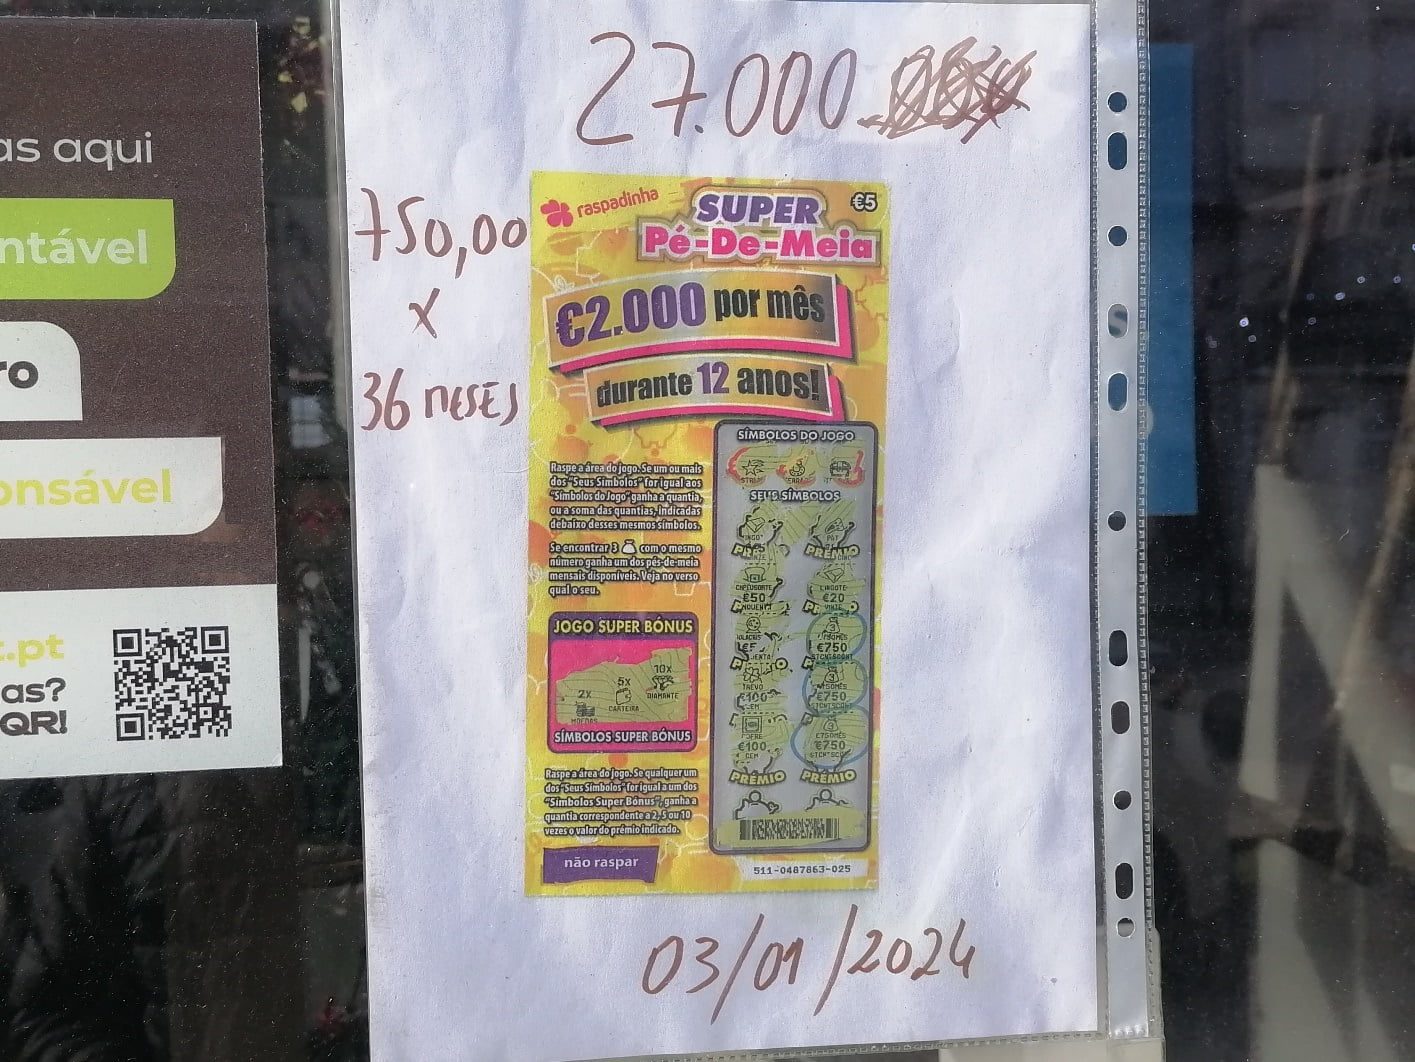 27.000
as aqui
ntável
ro
onsável
t.pt
as?
QR!
750,00
X
36 MESES
raspadinha
€5
SUPER
Pé-De-Meia
€2.000 por mês
durante 12 anos!
Raspe a área do jogo. Se um ou mais
dos "Seus Símbolos" for igual aos
"Símbolos do Jogo" ganha a quantia,
ou a soma das quantias, indicadas
debaixo desses mesmos símbolos.
Se encontrar 3 com o mesmo
número ganha um dos pés-de-meia
mensais disponíveis. Veja no verso
qual o seu.
JOGO SUPER BÓNUS
2X
5X
10X
MOEDAS
CARTEIRA
DIAMANTE
SÍMBOLOS SUPER BÓNUS
Raspe a área do jogo. Se qualquer um
dos "Seus Símbolos" for igual a um dos
"Símbolos Super Bónus", ganha a
quantia correspondente a 2, 5 ou 10
vezes o valor do prémio indicado.
não raspar
SÍMBOLOS DO JOGO
SEUS SÍMBOLOS
PRÉMIO
LINGOTE
€50
€20
VINTE
€750
TREVO
€100
€750
CEM
COFRE
€100
€750
CEM
PRÉMIO PRÉMIO
511-0487863-025
03/01/2024